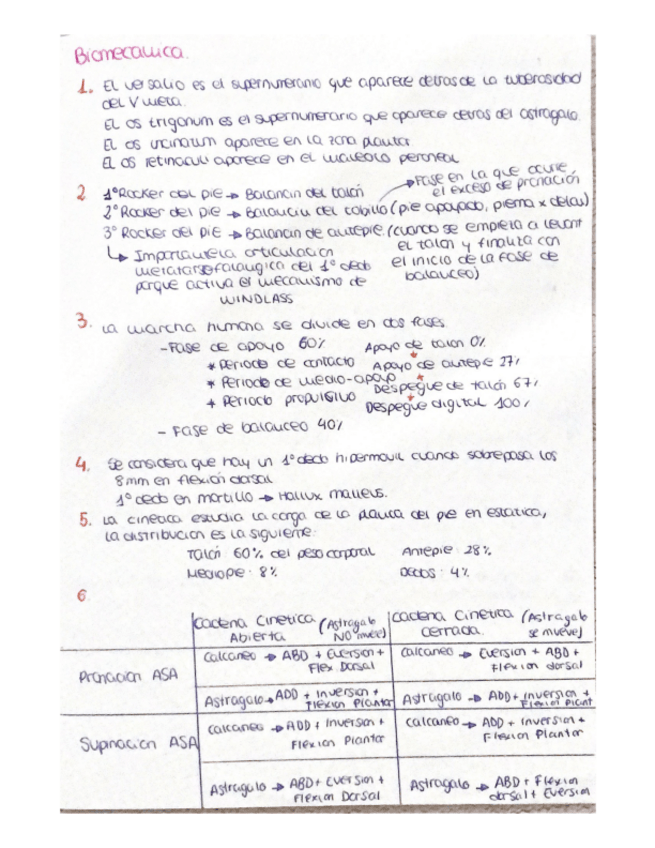 Biomecanica.
1. El versalio es el supernumerario que aparece detras de la tuberosidad
del V meta.
El os trigonum es el supernumerario que aparece detras del astragalo.
El os uncinatum aparece en la zona plantar
El os retinaculi aparece en el maleolo peroneal
2 1º Rocker del pie → Balancin del talón
→ Fase en la que ocurre el exceso de pronación
2º Rocker del pie → Balancin del tobillo (pie apoyado, pierna x delas)
3º Rocker del pie → Balancin de antepie. (cuando se empieza a levant
el talon y finaliza con
el inicio de la fase de
balanceo)
↳ Importancia articulacion
metatarsofalangica del 1º dedo
porque activa el mecanismo de
WINDLASS
3. La marcha humana se divide en dos fases.
- Fase de apoyo 60% Apoyo de talon 0%
* Periodo de contacto Apoyo de antepie 27%
* Periodo de medio-apoyo Despegue de talón 67%
* Periodo propulsivo Despegue digital 100%
- Fase de balanceo 40%
4. Se considera que hay un 1º dedo hipermovil cuando sobrepasa los
8mm en flexión dorsal
1º dedo en martillo → Hallux malleus.
5. La cinetica estudia la carga de la planta del pie en estatica,
la distribucion es la siguiente:
Talón: 60% del peso corporal Antepie: 28%
Mediopie: 8% Dedos: 4%
6.
Cadena Cinetica Abierta (Astragalo NO mueve) Cadena Cinetica cerrada. (Astragalo se mueve)
Pronacion ASA
Calcaneo → ABD + Eversion + Flex Dorsal
Calcaneo → Eversion + ABD + Flexion dorsal
Astragalo → ADD + Inversion + Flexion Plantar
Astragalo → ADD + Inversion + Flexion Plant
Supinacion ASA
Calcaneo → ADD + Inversion + Flexion Plantar
Calcaneo → ADD + Inversion + Flexion Plantar
Astragalo → ABD + Eversion + Flexion Dorsal
Astragalo → ABD + Flexion dorsal + Eversion